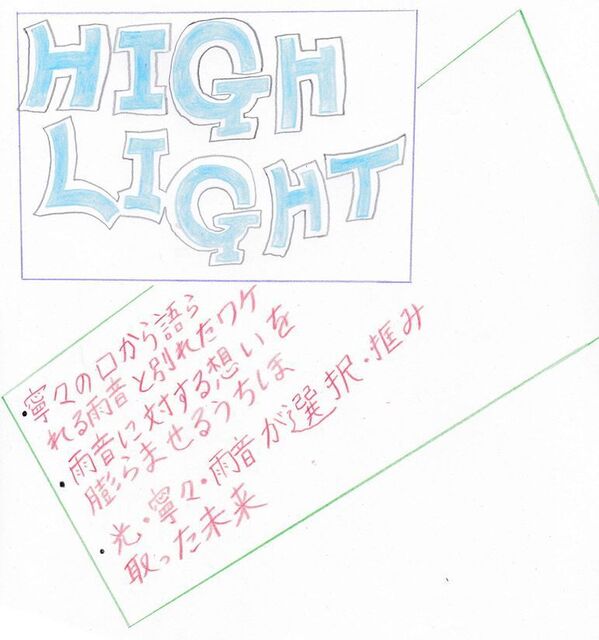 HIGH
LIGHT
・寧々の口から語ら
れる雨音と別れたワケ
・雨音に対する想いを
膨らませるうちしま
・光・寧々・雨音が選択・掴み
取った未来